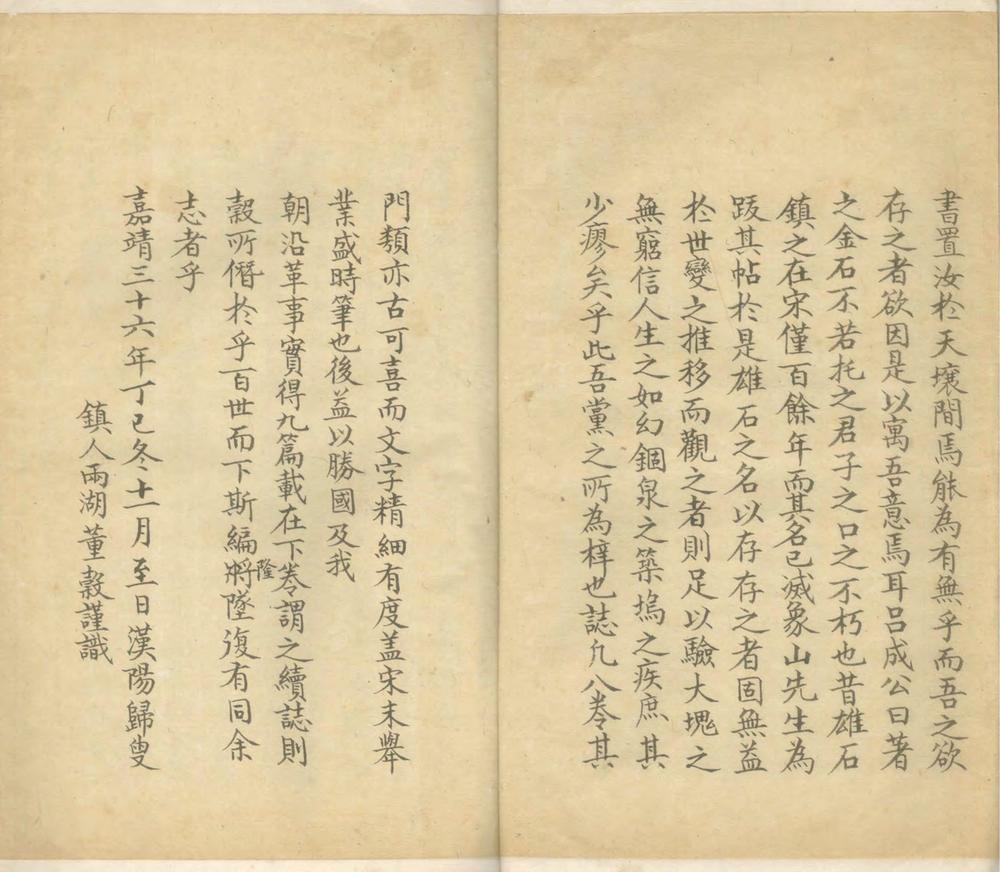 書置汝於天壤間焉能為有無乎而吾之欲
存之者欲因是以寓吾意焉耳呂成公曰著
之金石不若托之君子之口之不朽也昔雄石
鎮之在宋僅百餘年而其名已滅象山先生為
跋其帖於是雄石之名以存存之者固無益
於世變之推移而觀之者則足以驗大塊之
無窮信人生之如幻錮泉之築塢之疾庶其
少瘳矣乎此吾黨之所為梓也誌凡八卷其
門類亦古可喜而文字精細有度盖宋末舉
業盛時筆也後益以勝國及我
朝沿革事實得九篇載在下卷謂之續誌則
穀所僭於乎百世而下斯編將墜隆復有同余
志者乎
嘉靖三十六年丁巳冬十一月至日漢陽歸叟
鎮人兩湖董穀謹識